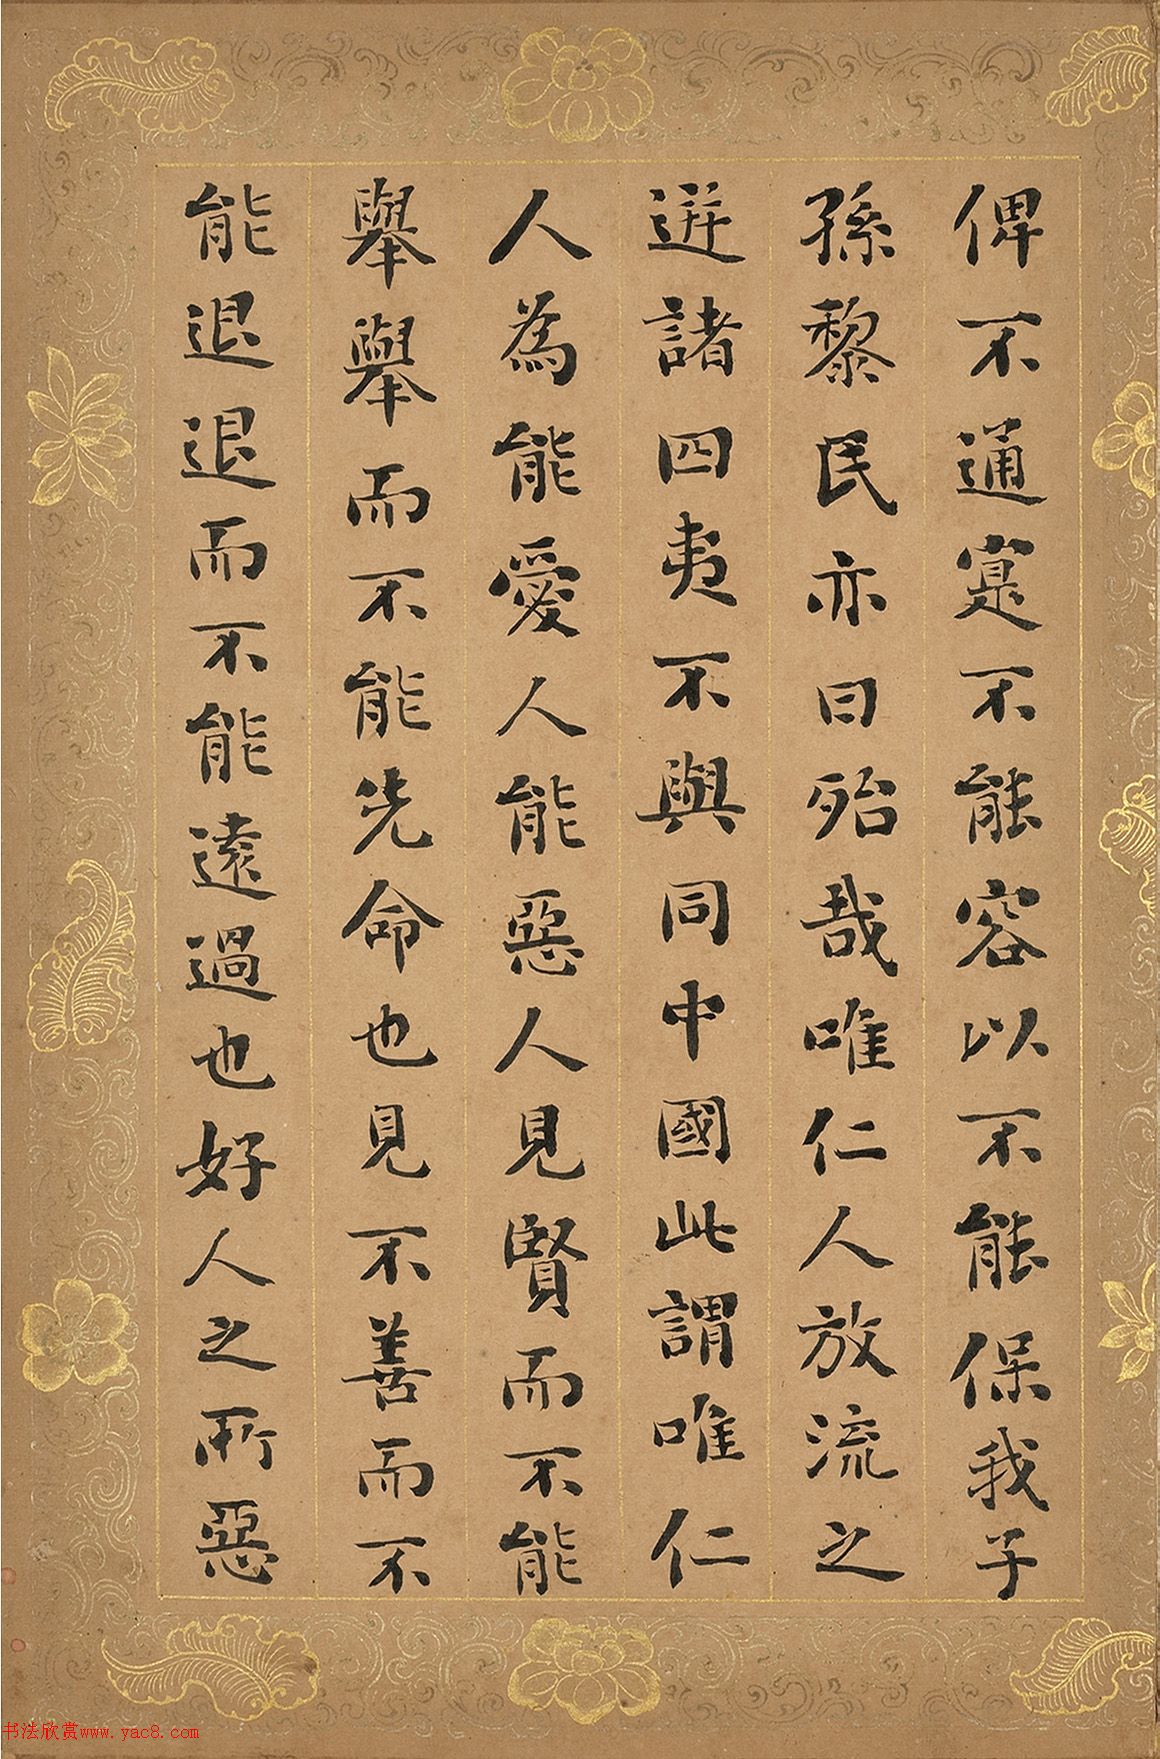 俾不通寔不能容以不能保我子
孫黎民亦曰殆哉唯仁人放流之
迸諸四夷不與同中國此謂唯仁
人為能愛人能惡人見賢而不能
舉舉而不能先命也見不善而不
能退退而不能遠過也好人之所惡
书法欣赏www.yac8.com